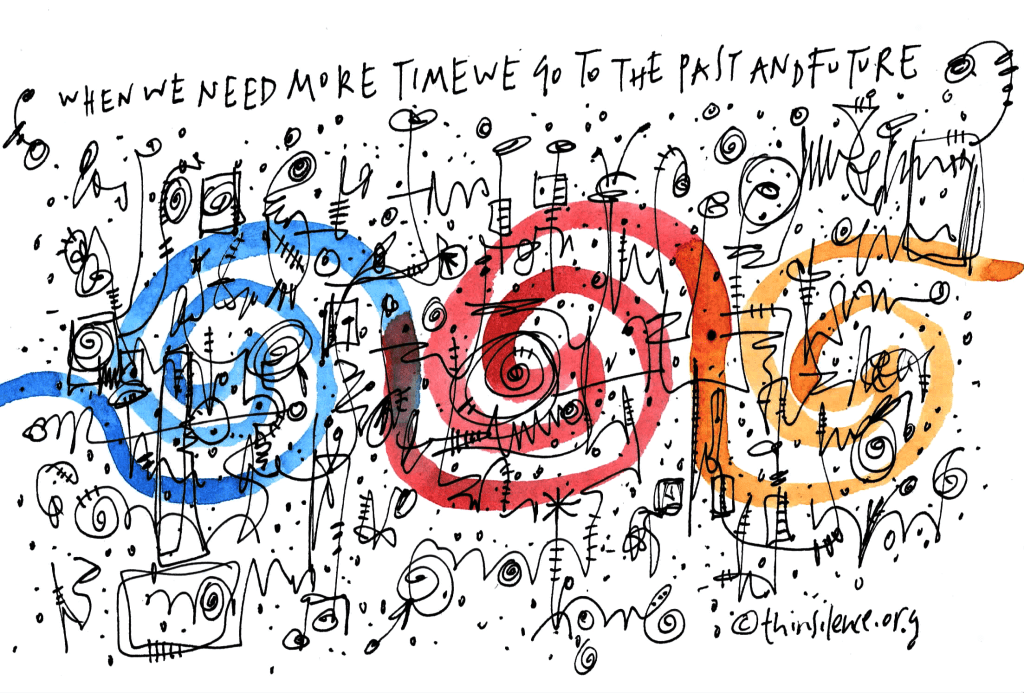 WHEN WE NEED MORE TIME WE GO TO THE PAST AND FUTURE
©thinsilence.org